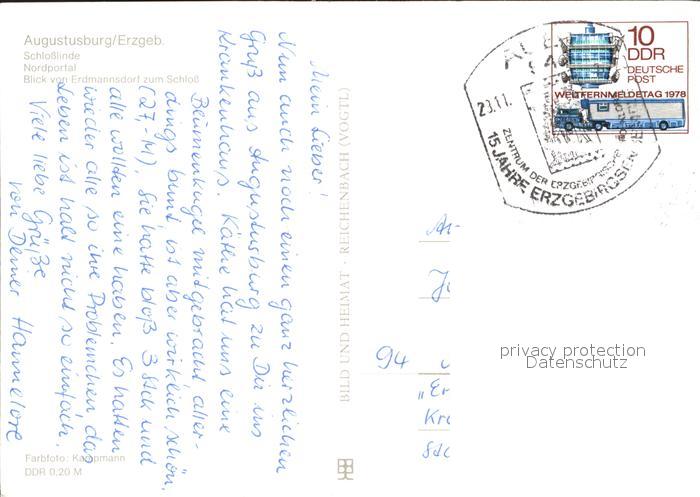 Augustusburg/Erzgeb.
Schloßlinde
Nordportal
Blick von Erdmannsdorf zum Schloß
Mein Lieber!
Nun auch noch einen ganz herzlichen
Gruß aus Augustusburg zu Dir ins
Krankenhaus. Käthe hat uns eine
Blumenkugel mitgebracht aller-
dings bunt ist aber wirklich schön.
(27,-M). Sie hatte bloß 3 Stck und
alle wollten eine haben. Es hatten
wieder alle so ihre Problemchen das
Leben ist halt nicht so einfach.
Viele liebe Grüße
von Deiner Hannelore
Farbfoto: Kampmann
DDR 0,20 M
BILD UND HEIMAT · REICHENBACH (VOGTL)
10
DDR
DEUTSCHE
POST
WELTFERNMELDETAG 1978
AUE
23.11.
ZENTRUM DER ERZGEBIRGISCHEN
15 JAHRE ERZGEBIRGSEN
An
94
"Er
Kr
privacy protection
Datenschutz